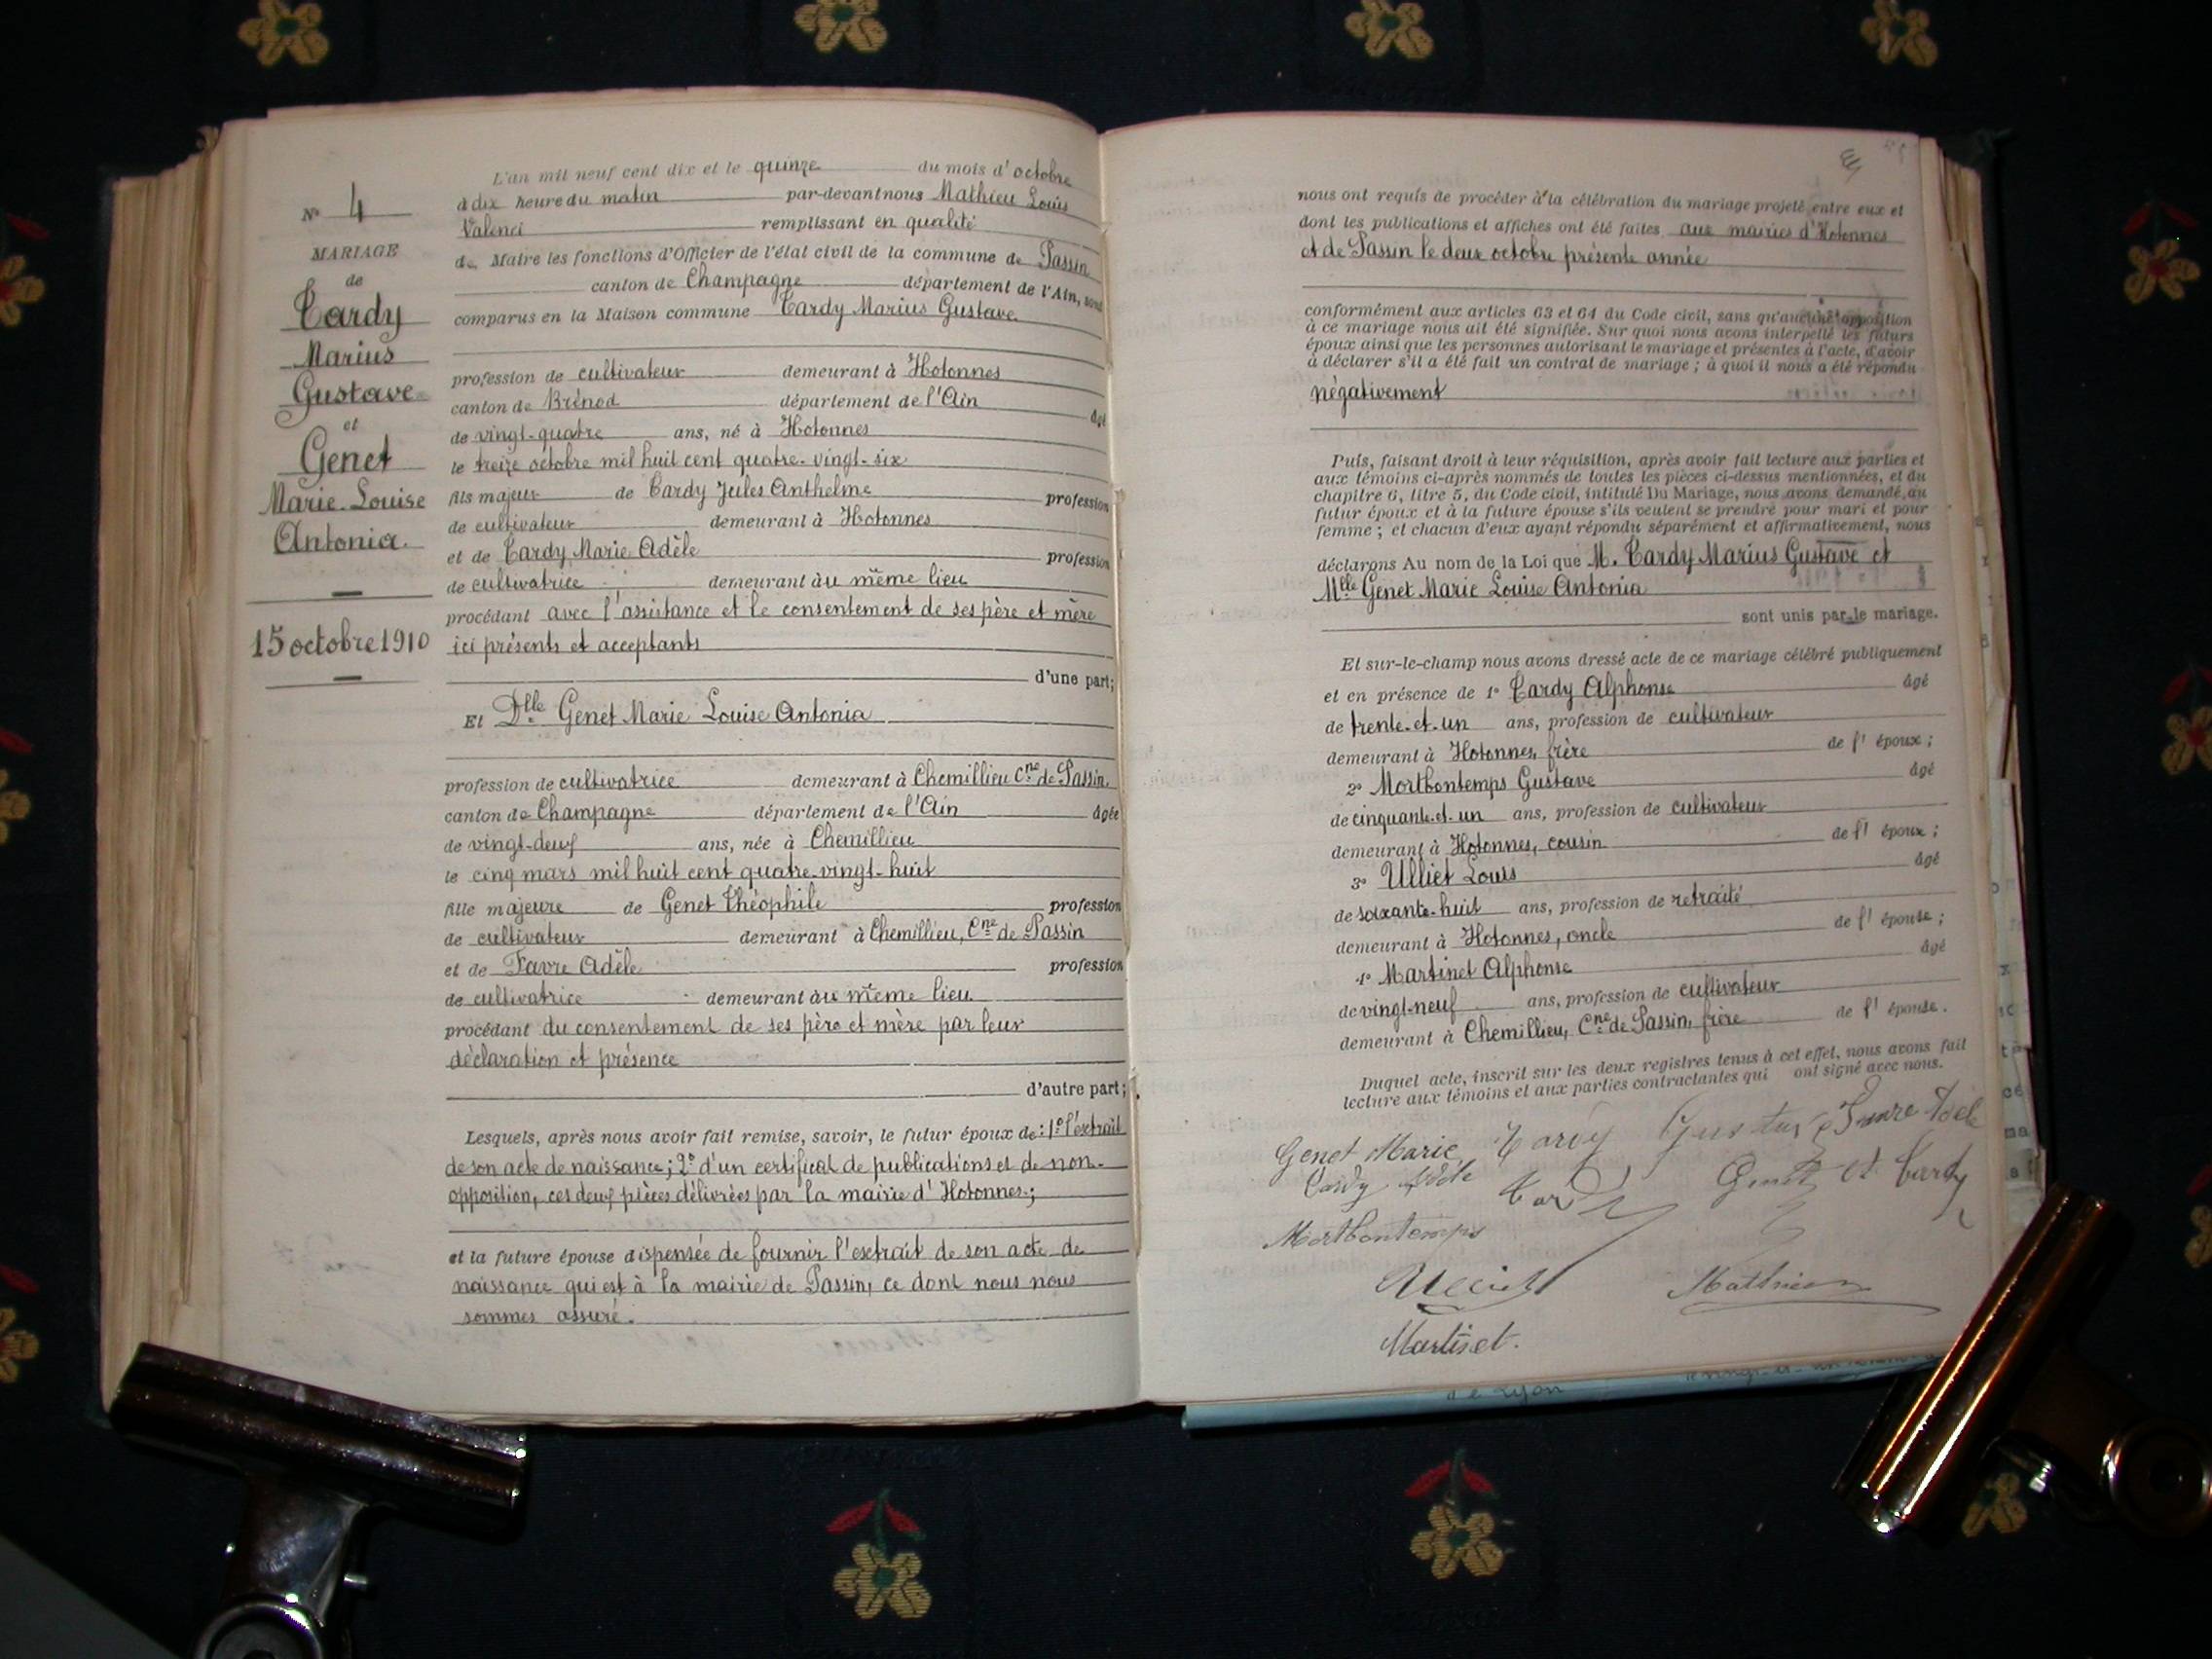 N° 4
MARIAGE
de
Tardy
Marius
Gustave
et
Genet
Marie-Louise
Antonia.
15 octobre 1910
L'an mil neuf cent dix et le quinze du mois d'octobre
à dix heure du matin par-devant nous Mathieu Louis
remplissant en qualité
de Maire les fonctions d'Officier de l'état civil de la commune de Passin
canton de Champagne département de l'Ain, sont
comparus en la Maison commune Tardy Marius Gustave
profession de cultivateur demeurant à Hotonnes
canton de Brénod département de l'Ain âgé
de vingt-quatre ans, né à Hotonnes
le treize octobre mil huit cent quatre-vingt-six
fils majeur de Tardy Jules Anthelme profession
de cultivateur demeurant à Hotonnes
et de Tardy Marie Adèle profession
de cultivatrice demeurant au même lieu
procédant avec l'assistance et le consentement de ses père et mère
ici présents et acceptants
d'une part;
Et Dlle Genet Marie Louise Antonia
profession de cultivatrice demeurant à Chemillieu Cne de Passin
canton de Champagne département de l'Ain âgée
de vingt-deux ans, née à Chemillieu
le cinq mars mil huit cent quatre-vingt-huit
fille majeure de Genet Théophile profession
de cultivateur demeurant à Chemillieu, Cne de Passin
et de Favre Adèle profession
de cultivatrice demeurant au même lieu
procédant du consentement de ses père et mère par leur
déclaration et présence
d'autre part;
Lesquels, après nous avoir fait remise, savoir, le futur époux de : 1° l'extrait
de son acte de naissance; 2° d'un certificat de publications et de non-
opposition, ces deux pièces délivrées par la mairie d'Hotonnes;
et la future épouse dispensée de fournir l'extrait de son acte de
naissance qui est à la mairie de Passin, ce dont nous nous
sommes assuré.
nous ont requis de procéder à la célébration du mariage projeté entre eux et
dont les publications et affiches ont été faites aux mairies d'Hotonnes
et de Passin le deux octobre présente année
conformément aux articles 63 et 64 du Code civil, sans qu'aucune opposition
à ce mariage nous ait été signifiée. Sur quoi nous avons interpellé les futurs
époux ainsi que les personnes autorisant le mariage et présentes à l'acte, d'avoir
à déclarer s'il a été fait un contrat de mariage ; à quoi il nous a été répondu
négativement
Puis, faisant droit à leur réquisition, après avoir fait lecture aux parties et
aux témoins ci-après nommés de toutes les pièces ci-dessus mentionnées, et du
chapitre 6, titre 5, du Code civil, intitulé Du Mariage, nous avons demandé au
futur époux et à la future épouse s'ils veulent se prendre pour mari et pour
femme ; et chacun d'eux ayant répondu séparément et affirmativement, nous
déclarons Au nom de la Loi que M. Tardy Marius Gustave et
Mlle Genet Marie Louise Antonia
sont unis par le mariage.
Et sur-le-champ nous avons dressé acte de ce mariage célébré publiquement
et en présence de 1° Tardy Alphonse âgé
de trente-et-un ans, profession de cultivateur
demeurant à Hotonnes, frère de l' époux ;
2° Mortbontemps Gustave âgé
de cinquante-et-un ans, profession de cultivateur
demeurant à Hotonnes, cousin de l' époux ;
3° Ulliet Louis âgé
de soixante-huit ans, profession de retraité
demeurant à Hotonnes, oncle de l' épouse ;
4° Martinet Alphonse âgé
de vingt-neuf ans, profession de cultivateur
demeurant à Chemillieu, Cne de Passin, frère de l' épouse.
Duquel acte, inscrit sur les deux registres tenus à cet effet, nous avons fait
lecture aux témoins et aux parties contractantes qui ont signé avec nous.
Genet Marie Tardy Gustave Favre Adèle
Tardy Adèle Tardy Genet Tardy
Mortbontemps
Ulliet Mathieu
Martinet.
de Lyon